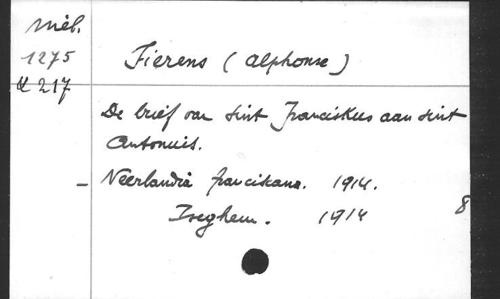 Mél.
1275
& 217
Fierens (Alphonse)
De brief van Sint Franciskus aan Sint
Antonuis.
- Neerlandia franciscana. 1914.
Iseghem. 1914
8